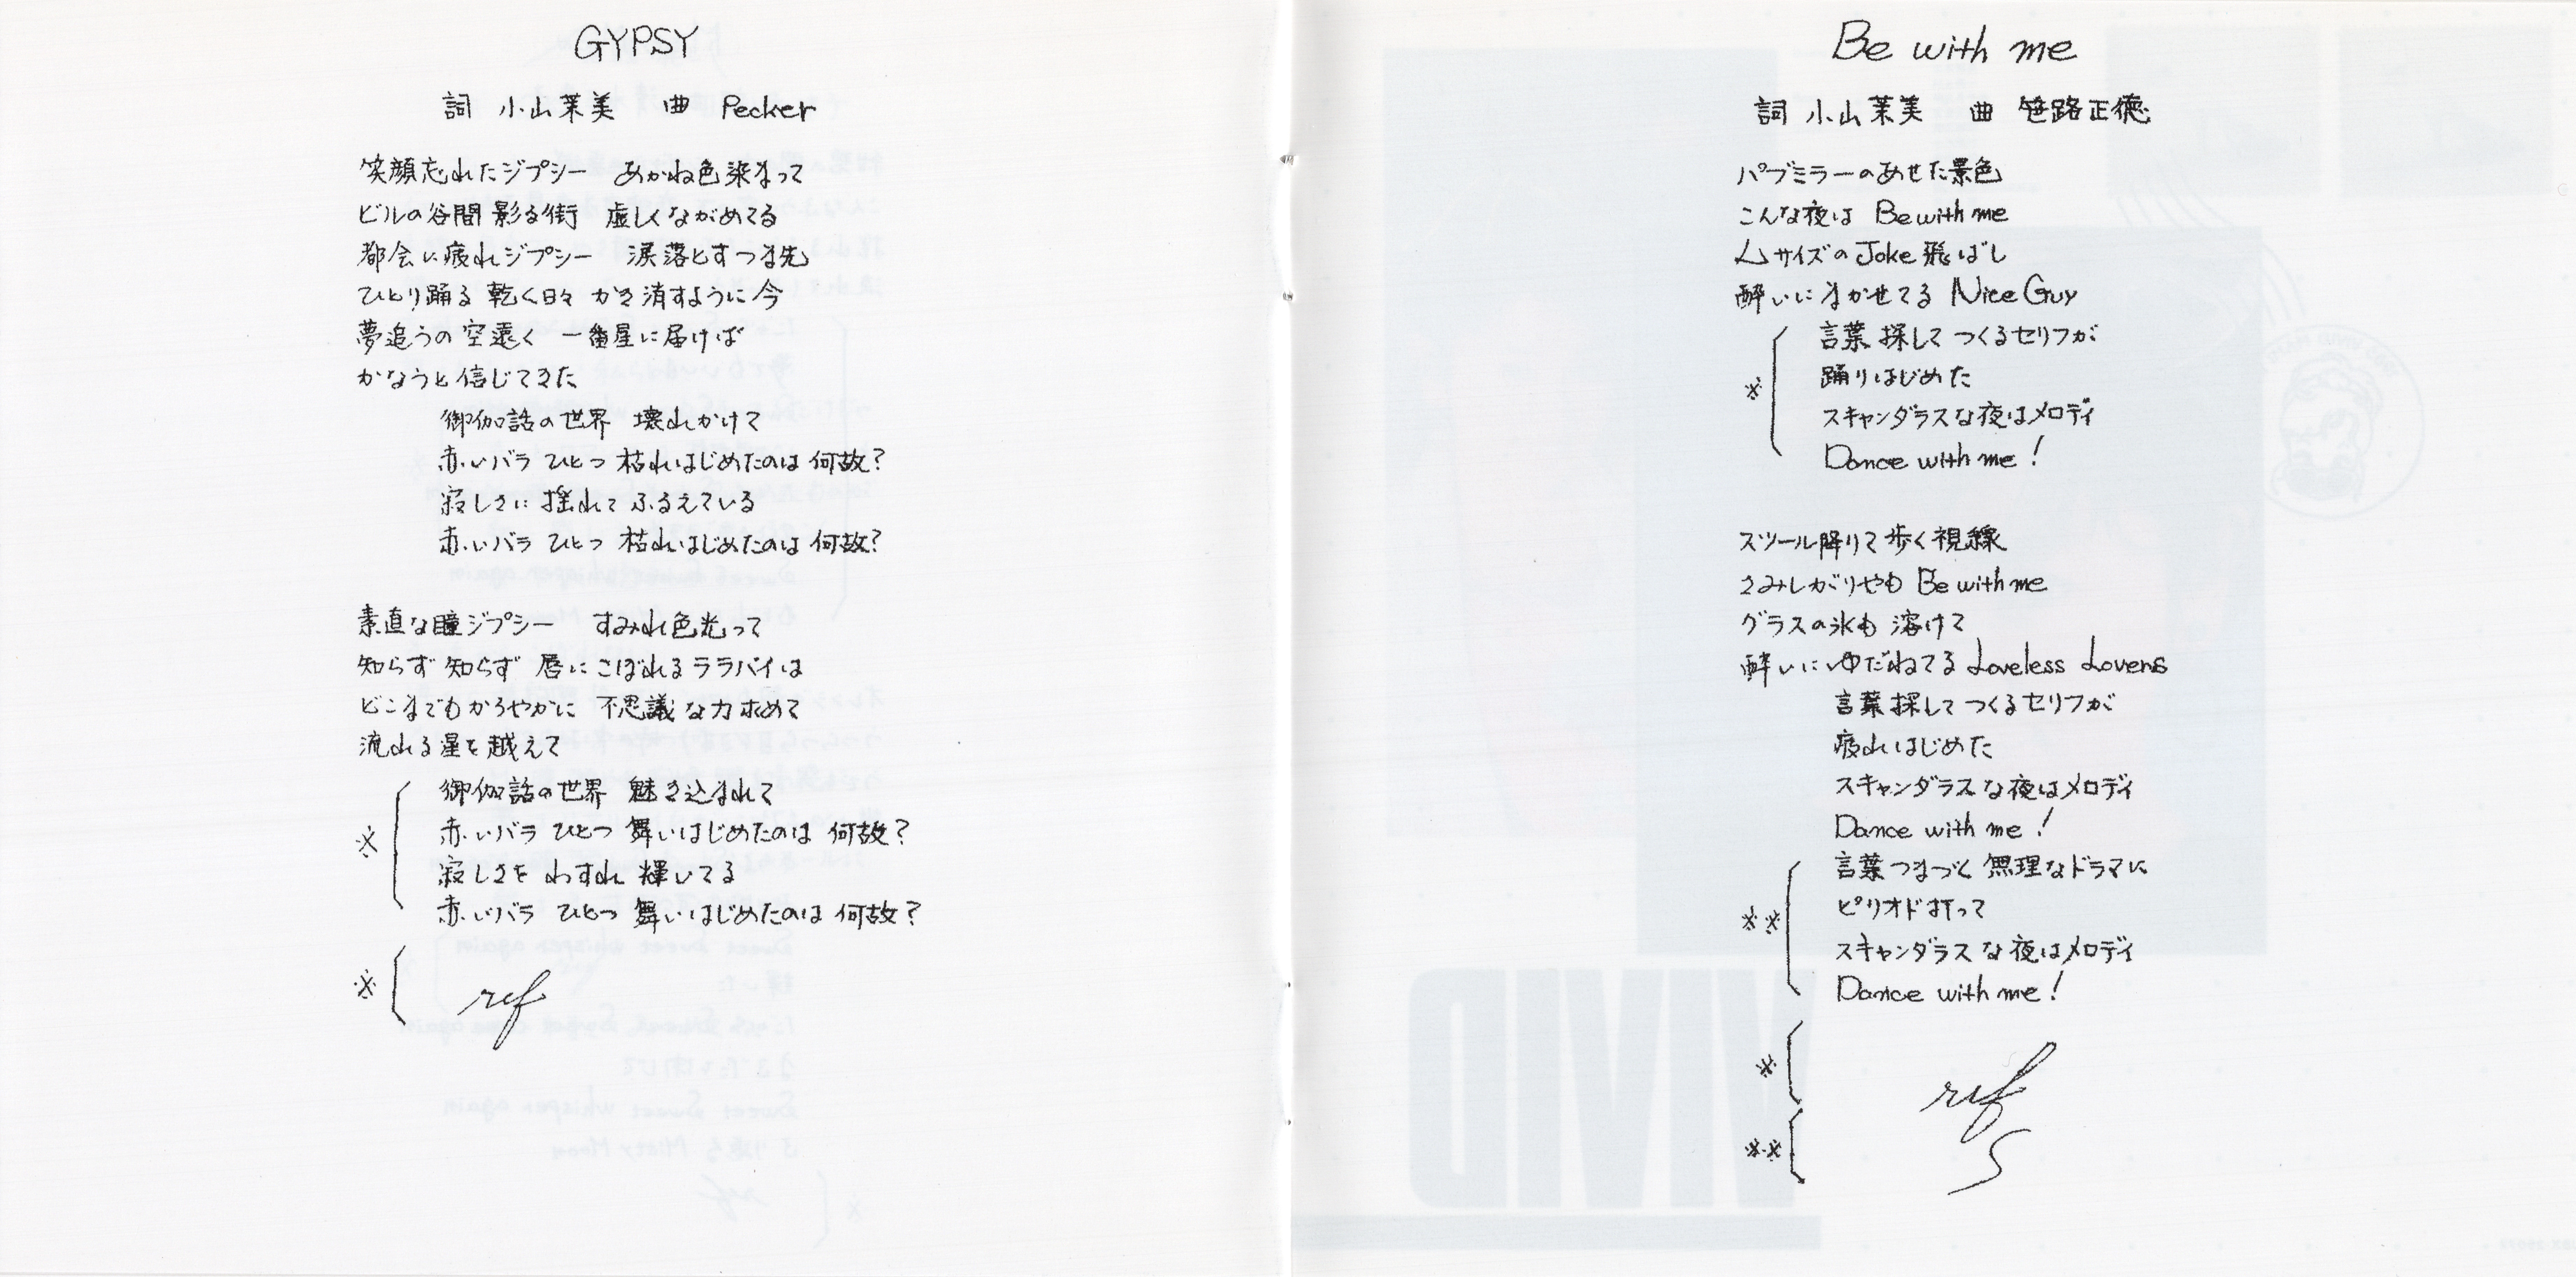 GYPSY
詞 小山茉美 曲 Pecker
笑顔忘れたジプシー あかね色染まって
ビルの谷間 影る街 虚しくながめてる
都会に疲れジプシー 涙落とすつま先
ひとり踊る 乾く日々 かき消すように今
夢追うの 空遠く 一番星に届けば
かなうと信じてきた
御伽話の世界 壊れかけて
赤いバラ ひとつ 枯れはじめたのは 何故?
寂しさに 揺れて ふるえている
赤いバラ ひとつ 枯れはじめたのは 何故?
素直な瞳ジプシー すみれ色光って
知らず 知らず 唇に こぼれる ララバイは
どこまでもかろやかに 不思議な力求めて
流れる星を越えて
※ 御伽話の世界 魅き込まれて
赤いバラ ひとつ 舞いはじめたのは 何故?
寂しさを わすれ 輝いてる
赤いバラ ひとつ 舞いはじめたのは 何故?
※ ref
Be with me
詞 小山茉美 曲 笹路正徳
パブミラーのあせた景色
こんな夜は Be with me
LサイズのJoke 飛ばし
酔いにまかせてる Nice Guy
言葉 探して つくるセリフが
※ 踊りはじめた
スキャンダラスな夜はメロディ
Dance with me!
スツール降りて 歩く視線
さみしがりやも Be with me
グラスの氷も 溶けて
酔いにゆだねてる Loveless Lovers
言葉 探して つくるセリフが
疲れはじめた
スキャンダラスな夜はメロディ
Dance with me!
言葉つまづく 無理なドラマに
※※ ピリオド打って
スキャンダラスな夜はメロディ
Dance with me!
※ ref
※※